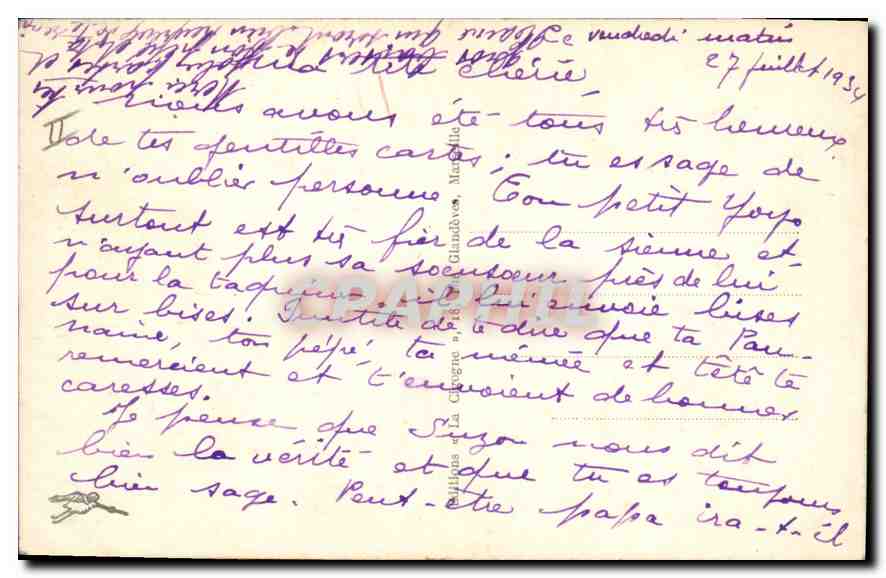 Le vendredi matin
27 juillet 1934
chérie
Nous avons été tous très heureux
II
de tes gentilles cartes ; tu es sage de
n'oublier personne. Ton petit Yoyo
surtout est très fier de la sienne et
n'ayant plus sa soeusoeur près de lui
pour la taquiner, il lui envoie bises
sur bises. Inutile de te dire que ta Pau-
naine, ton pépé, ta mémée et têtê te
remercient et t'envoient de bonnes
caresses.
Je pense que Suzon nous dit
bien la vérité et que tu es toujours
bien sage. Peut-être papa ira-t-il
Editions « La Cigogne », 18 Glandèves, Marseille
CPAPHIL